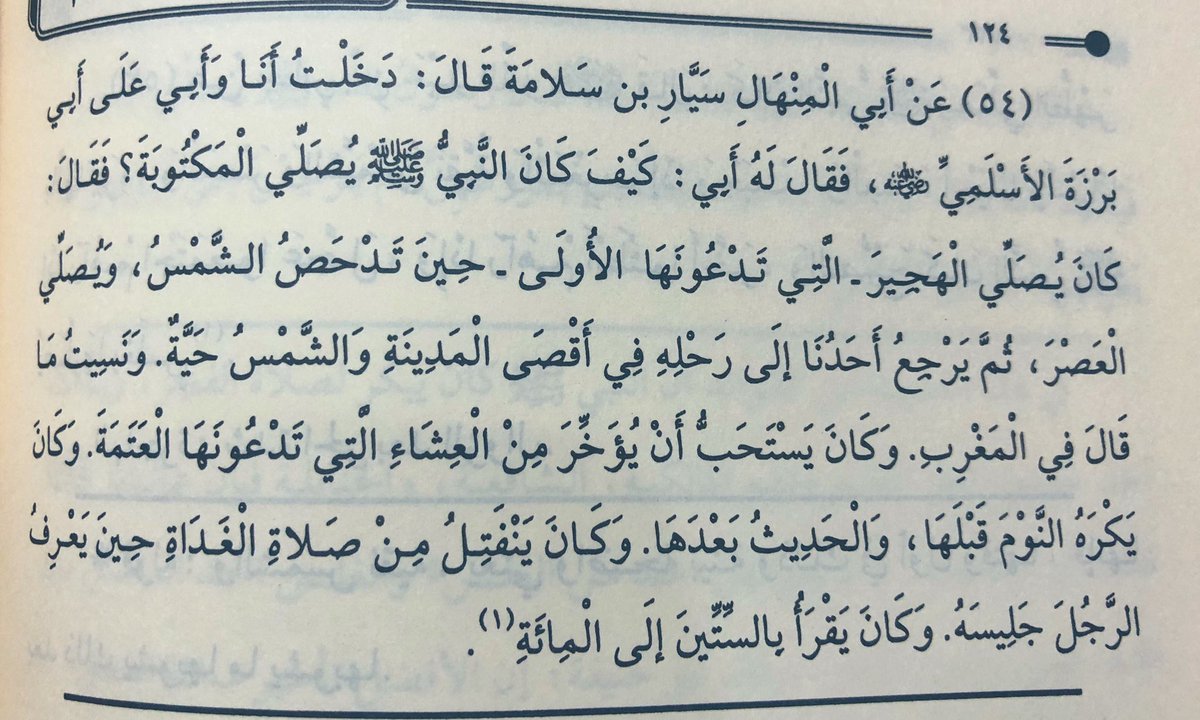 ١٢٤
(٥٤) عَنْ أَبِي الْمِنْهَالِ سَيَّارِ بن سَلامَةَ قَالَ: دَخَلْتُ أَنَا وَأَبِي عَلَى أَبِي
بَرْزَةَ الأَسْلَمِيِّ ﷺ، فَقَالَ لَهُ أَبِي: كَيْفَ كَانَ النَّبِيُّ ﷺ يُصَلِّي الْمَكْتُوبَةَ؟ فَقَالَ:
كَانَ يُصَلِّي الْهَجِيرَ ـ الَّتِي تَدْعُونَهَا الأُولَى ـ حِينَ تَدْحَضُ الشَّمْسُ، وَيُصَلِّي
الْعَصْرَ، ثُمَّ يَرْجِعُ أَحَدُنَا إلَى رَحْلِهِ فِي أَقْصَى الْمَدِينَةِ وَالشَّمْسُ حَيَّةٌ. وَنَسِيتُ مَا
قَالَ فِي الْمَغْرِبِ. وَكَانَ يَسْتَحَبُّ أَنْ يُؤَخِّرَ مِنْ الْعِشَاءِ الَّتِي تَدْعُونَهَا الْعَتَمَةَ. وَكَانَ
يَكْرَهُ النَّوْمَ قَبْلَهَا، وَالْحَدِيثُ بَعْدَهَا. وَكَانَ يَنْفَتِلُ مِنْ صَلاةِ الْغَدَاةِ حِينَ يَعْرِفُ
الرَّجُلَ جَلِيسَهُ. وَكَانَ يَقْرَأُ بِالسِّتِّينَ إلَى الْمِائَةِ(١).